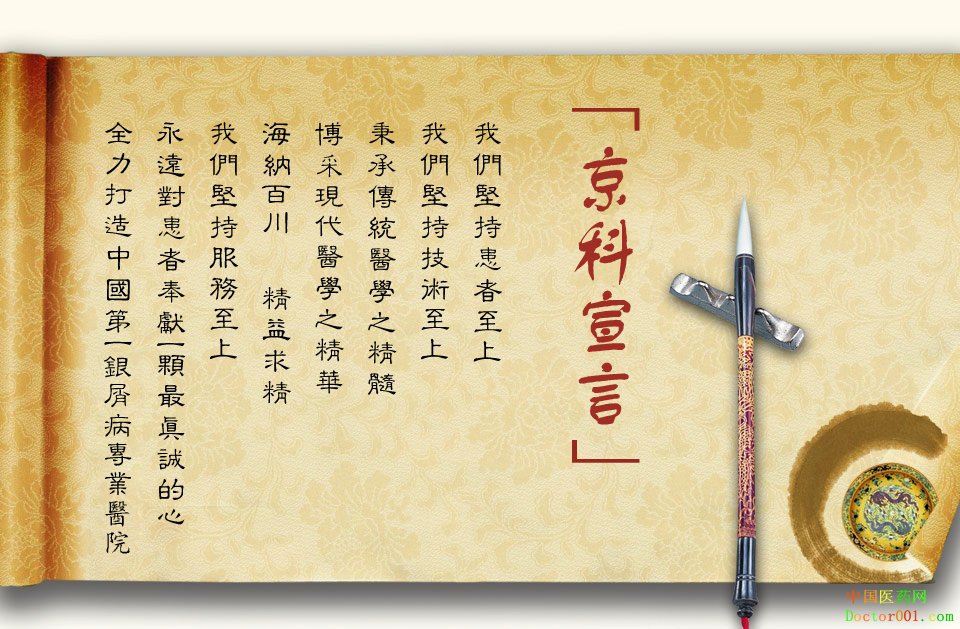 「京科宣言」
我們堅持患者至上
我們堅持技術至上
秉承傳統醫學之精髓
博采現代醫學之精華
海納百川 精益求精
我們堅持服務至上
永遠對患者奉獻一顆最真誠的心
全力打造中國第一銀屑病專業醫院
中国医药网
Doctor001.com